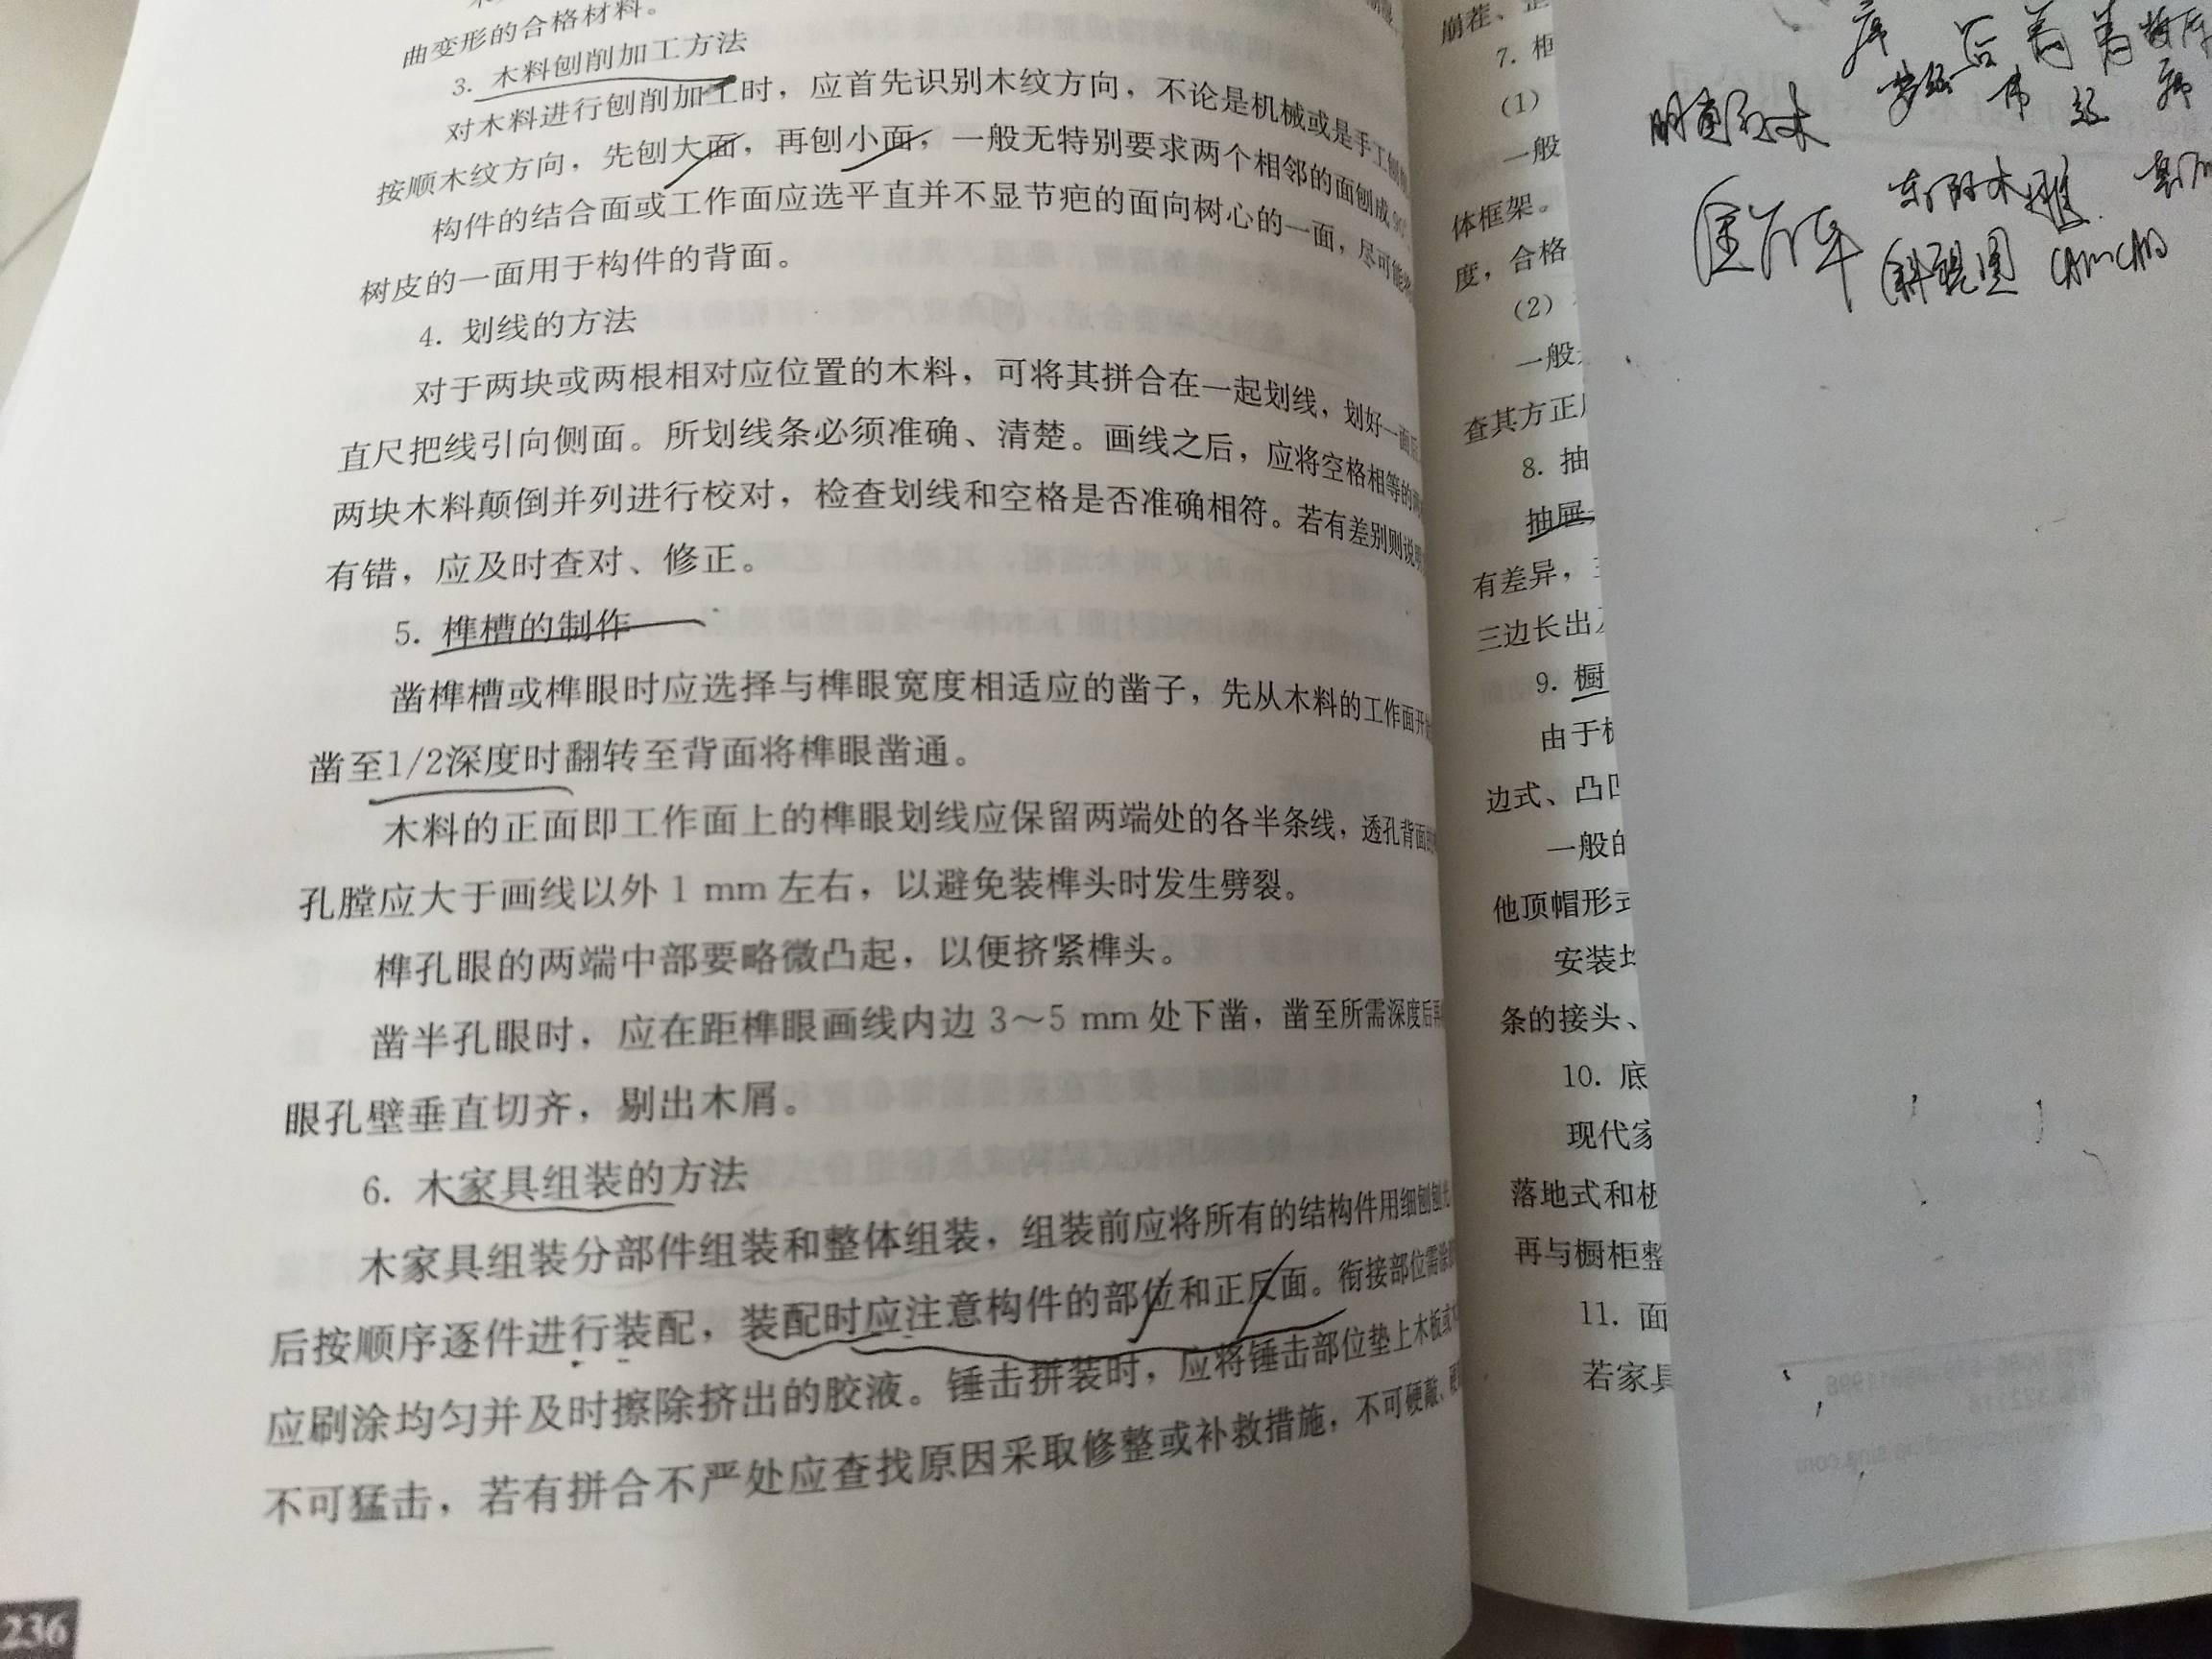 曲变形的合格材料。
3. 木料刨削加工方法
对木料进行刨削加工时，应首先识别木纹方向，不论是机械或是手工刨削
按顺木纹方向，先刨大面，再刨小面，一般无特别要求两个相邻的面刨成90°
构件的结合面或工作面应选平直并不显节疤的面向树心的一面，尽可能
树皮的一面用于构件的背面。
4. 划线的方法
对于两块或两根相对应位置的木料，可将其拼合在一起划线，划好一面后
直尺把线引向侧面。所划线条必须准确、清楚。画线之后，应将空格相等的两
两块木料颠倒并列进行校对，检查划线和空格是否准确相符。若有差别则说明
有错，应及时查对、修正。
5. 榫槽的制作
凿榫槽或榫眼时应选择与榫眼宽度相适应的凿子，先从木料的工作面开
凿至1/2深度时翻转至背面将榫眼凿通。
木料的正面即工作面上的榫眼划线应保留两端处的各半条线，透孔背面
孔膛应大于画线以外 1 mm 左右，以避免装榫头时发生劈裂。
榫孔眼的两端中部要略微凸起，以便挤紧榫头。
凿半孔眼时，应在距榫眼画线内边 3～5 mm 处下凿，凿至所需深度后再
眼孔壁垂直切齐，剔出木屑。
6. 木家具组装的方法
木家具组装分部件组装和整体组装，组装前应将所有的结构件用细刨刨光
后按顺序逐件进行装配，装配时应注意构件的部位和正反面。衔接部位需涂
应刷涂均匀并及时擦除挤出的胶液。锤击拼装时，应将锤击部位垫上木板或
不可猛击，若有拼合不严处应查找原因采取修整或补救措施，不可硬敲、硬
236
崩茬、
7. 柜
(1)
一般
体框架。
度，合格
(2)
一般
查其方正
8. 抽
抽屉
有差异，
三边长出
9. 橱
由于
边式、凸凹
一般的
他顶帽形式
安装
条的接头、
10. 底
现代家
落地式和板
再与橱柜整
11. 面
若家具